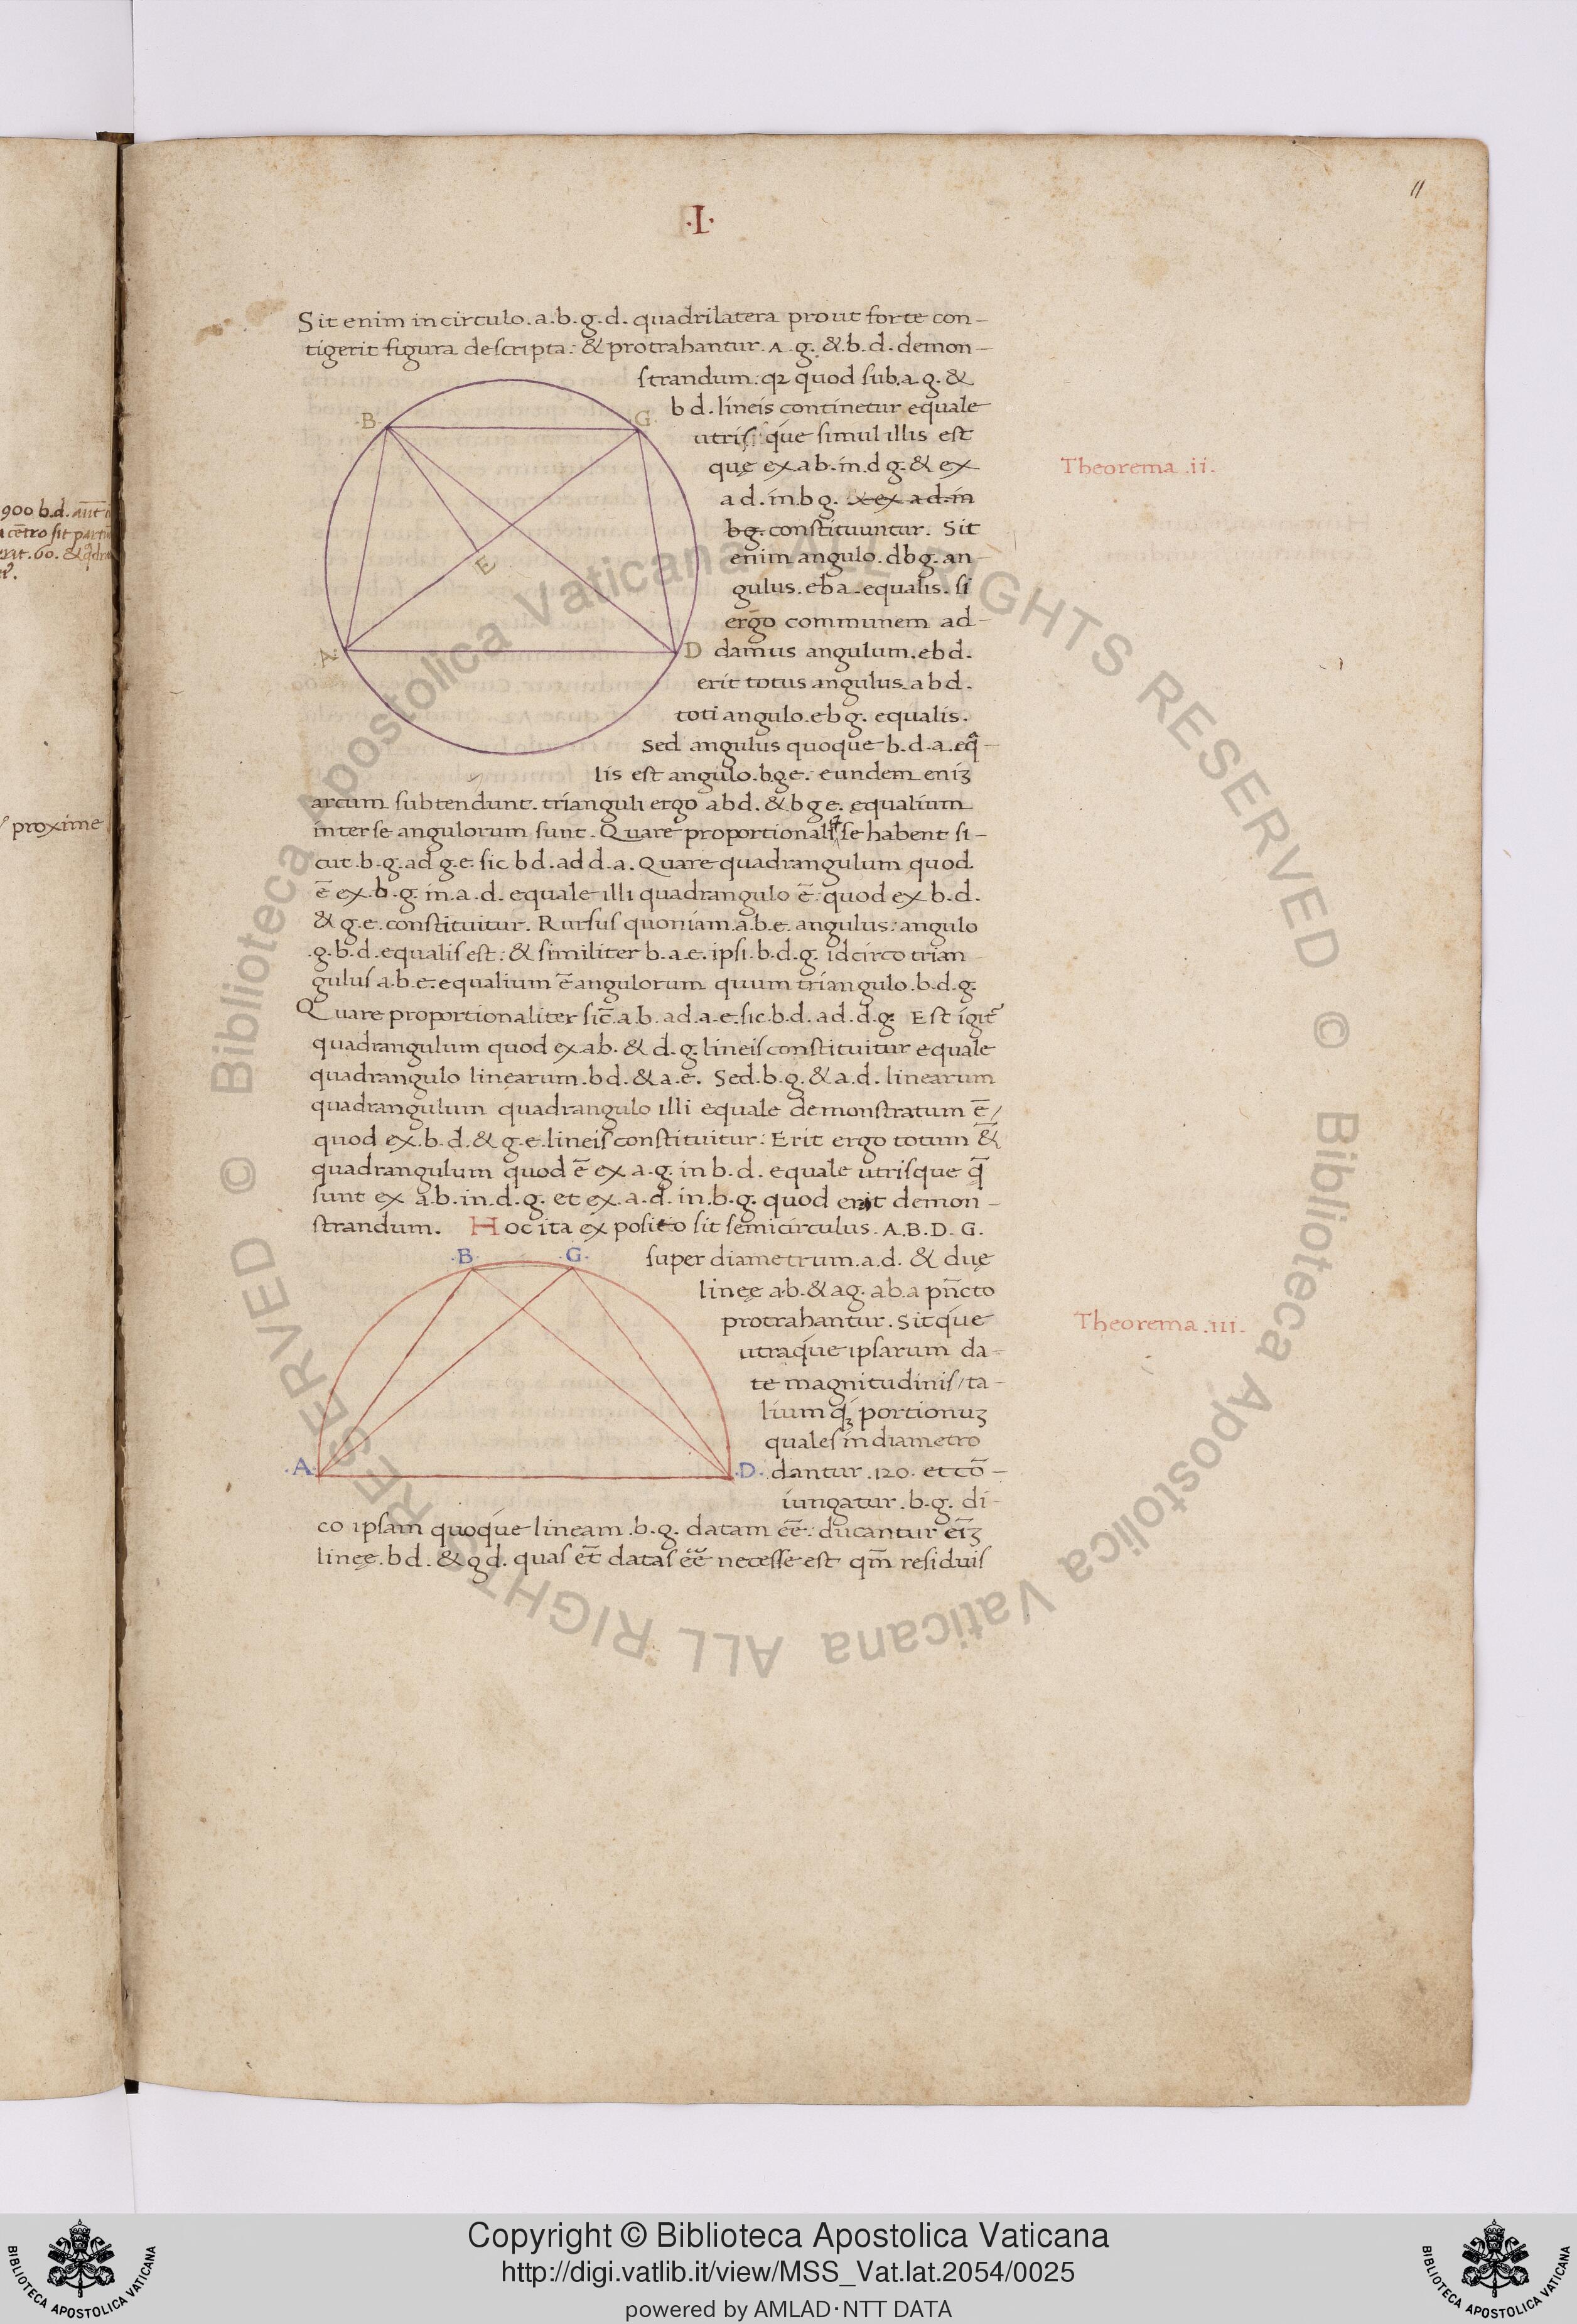 11
·I·
Sit enim in circulo. a.b.g.d. quadrilatera prout forte con-
tigerit figura descripta: & protrahantur. A.g. & b.d. demon-
strandum: qꝫ quod sub.a.g. &
b d. lineis continetur equale
utrisque simul illis est
quę ex a b. in. d g. & ex
a d. in b g. & ex a d. in
b g. constituuntur. Sit
enim angulo. d b g. an-
gulus. e b a. equalis. si
ergo communem ad-
damus angulum. e b d.
erit totus angulus. a b d.
toti angulo. e b g. equalis.
Sed angulus quoque b.d.a. eq̄-
lis est angulo. b.g.e. eundem eniꝫ
arcum subtendunt. trianguli ergo a b d. & b g e. equalium
inter se angulorum sunt. Quare proportionali se habent si-
cut. b.g. ad g.e. sic b d. ad d.a. Quare quadrangulum quod
ē ex. b.g. in. a.d. equale illi quadrangulo ē: quod ex b.d.
& g.e. constituitur. Rursus quoniam. a.b.e. angulus: angulo
.g.b.d. equalis est: & similiter b.a.e. ipsi. b.d.g. idcirco trian-
gulus a.b.e. equalium ē angulorum quum triangulo. b.d.g.
Quare proportionaliter sic̄. a.b. ad. a.e. sic. b.d. ad. d.g. Est igit̄
quadrangulum quod ex a b. & d.g. lineis constituitur equale
quadrangulo linearum. b d. & a.e. Sed. b.g. & a.d. linearum
quadrangulum quadrangulo illi equale demonstratum ē/
quod ex. b.d. & g.e. lineis constituitur: Erit ergo totum &̄
quadrangulum quod ē ex a.g. in b.d. equale utrisque q̄
sunt ex a.b. in. d.g. et ex. a.d. in. b.g. quod erat demon-
strandum. Hoc ita exposito sit semicirculus. A.B.D.G.
super diametrum. a.d. & duę
lineę a.b. & a g. ab. a pūcto
protrahantur. Sitque
utraque ipsarum da-
te magnitudinis/ ta-
lium qꝫ portionuꝫ
quales in diametro
dantur. 120. et cō-
iungatur. b.g. di-
co ipsam quoque lineam. b.g. datam eē: ducantur
lineę. b d. & g d. quas et̄ datas eē necesse est qm̄ residuis
B
G
E
A
D
·B·
·G·
·A·
·D·
Theorema .ii.
Theorema .iii.
900 b.d.
cētro sit
erit. 60. &
proxime
© Biblioteca Apostolica Vaticana ALL RIGHTS RESERVED © Biblioteca Apostolica Vaticana ALL RIGHTS RESERVED
Copyright © Biblioteca Apostolica Vaticana
http://digi.vatlib.it/view/MSS_Vat.lat.2054/0025
powered by AMLAD·NTT DATA
BIBLIOTECA APOSTOLICA VATICANA
BIBLIOTECA APOSTOLICA VATICANA